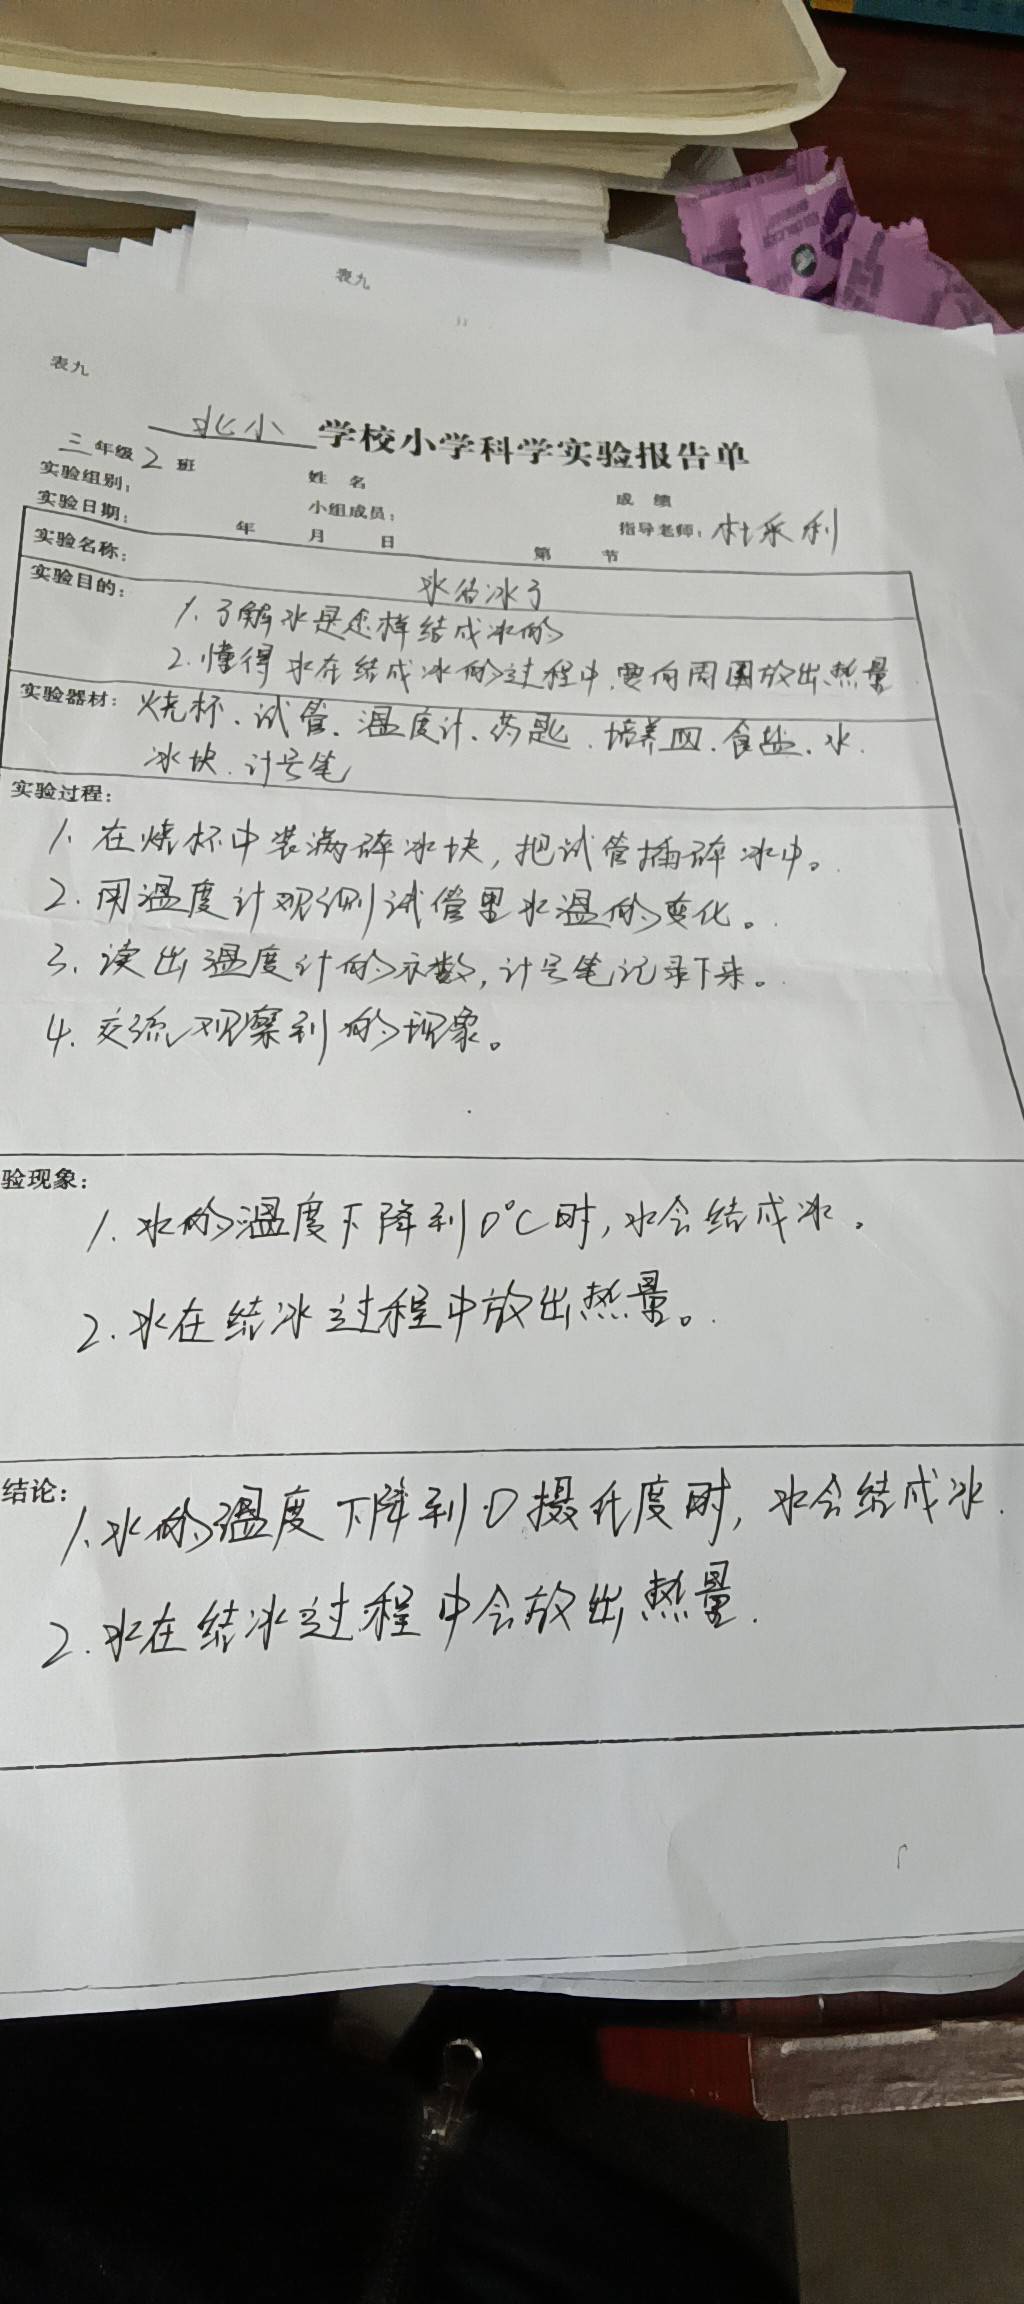 表九
表九
北小 学校小学科学实验报告单
三年级2班 姓 名 成 绩
实验组别： 小组成员： 指导老师：杜永利
实验日期： 年 月 日 第 节
实验名称： 水结冰了
实验目的： 1.了解水是怎样结成冰的
2.懂得水在结成冰的过程中,要向周围放出热量
实验器材：烧杯、试管、温度计、药匙、培养皿、食盐、水
冰块、计号笔
实验过程：
1、在烧杯中装满碎冰块,把试管插碎冰中。
2.用温度计观测试管里水温的变化。
3、读出温度计的示数,计号笔记录下来。
4.交流观察到的现象。
验现象：
1.水的温度下降到0℃时,水会结成冰。
2.水在结冰过程中放出热量。
结论：
1、水的温度下降到0摄氏度时,水会结成冰.
2.水在结冰过程中会放出热量.